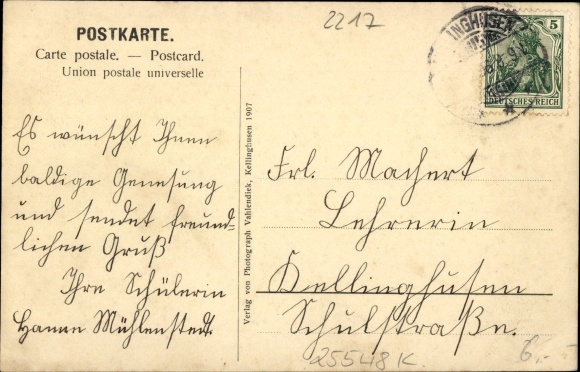 POSTKARTE.
Carte postale. — Postcard.
Union postale universelle
2217
INGHUSEN
5
DEUTSCHES REICH
Es wünscht Ihnen
baldige Genesung
und sendet freund-
lichen Gruß
Ihre Schülerin
Hanne Mühlenstedt.
Verlag von Photograph Vahlendiek, Kellinghusen 1907
Frl. Machert
Lehrerin
Kellinghusen
Schulstraße.
25548 K.
6,-